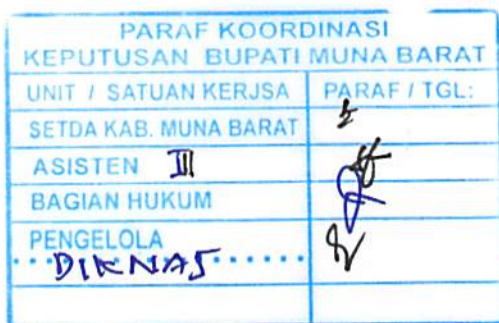 PARAF KOORDINASI
KEPUTUSAN BUPATI MUNA BARAT
UNIT / SATUAN KERJSA PARAF / TGL:
SETDA KAB. MUNA BARAT
ASISTEN III
BAGIAN HUKUM
PENGELOLA
DIKNAS